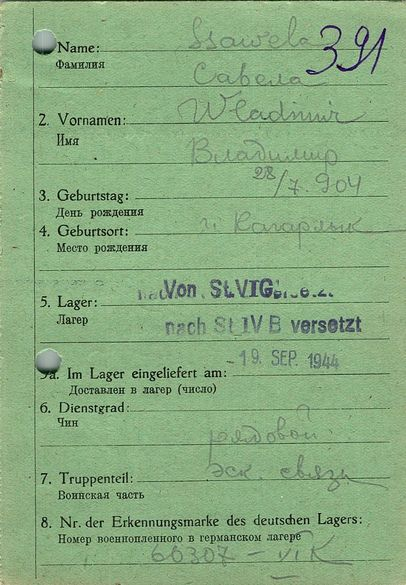 391
Name: Ssawela
Фамилия Савела
2. Vornamen: Wladimir
Имя Владимир
3. Geburtstag: 28/7. 904
День рождения
4. Geburtsort: г. Кагарлык
Место рождения
Von St. VI G
5. Lager:
Лагер
nach St IV B versetzt
19. SEP. 1944
9a. Im Lager eingeliefert am:
Доставлен в лагер (число)
6. Dienstgrad:
Чин
рядовой
7. Truppenteil: эск. связи
Воинская часть
8. Nr. der Erkennungsmarke des deutschen Lagers:
Номер военнопленного в германском лагере
60307 - VI K